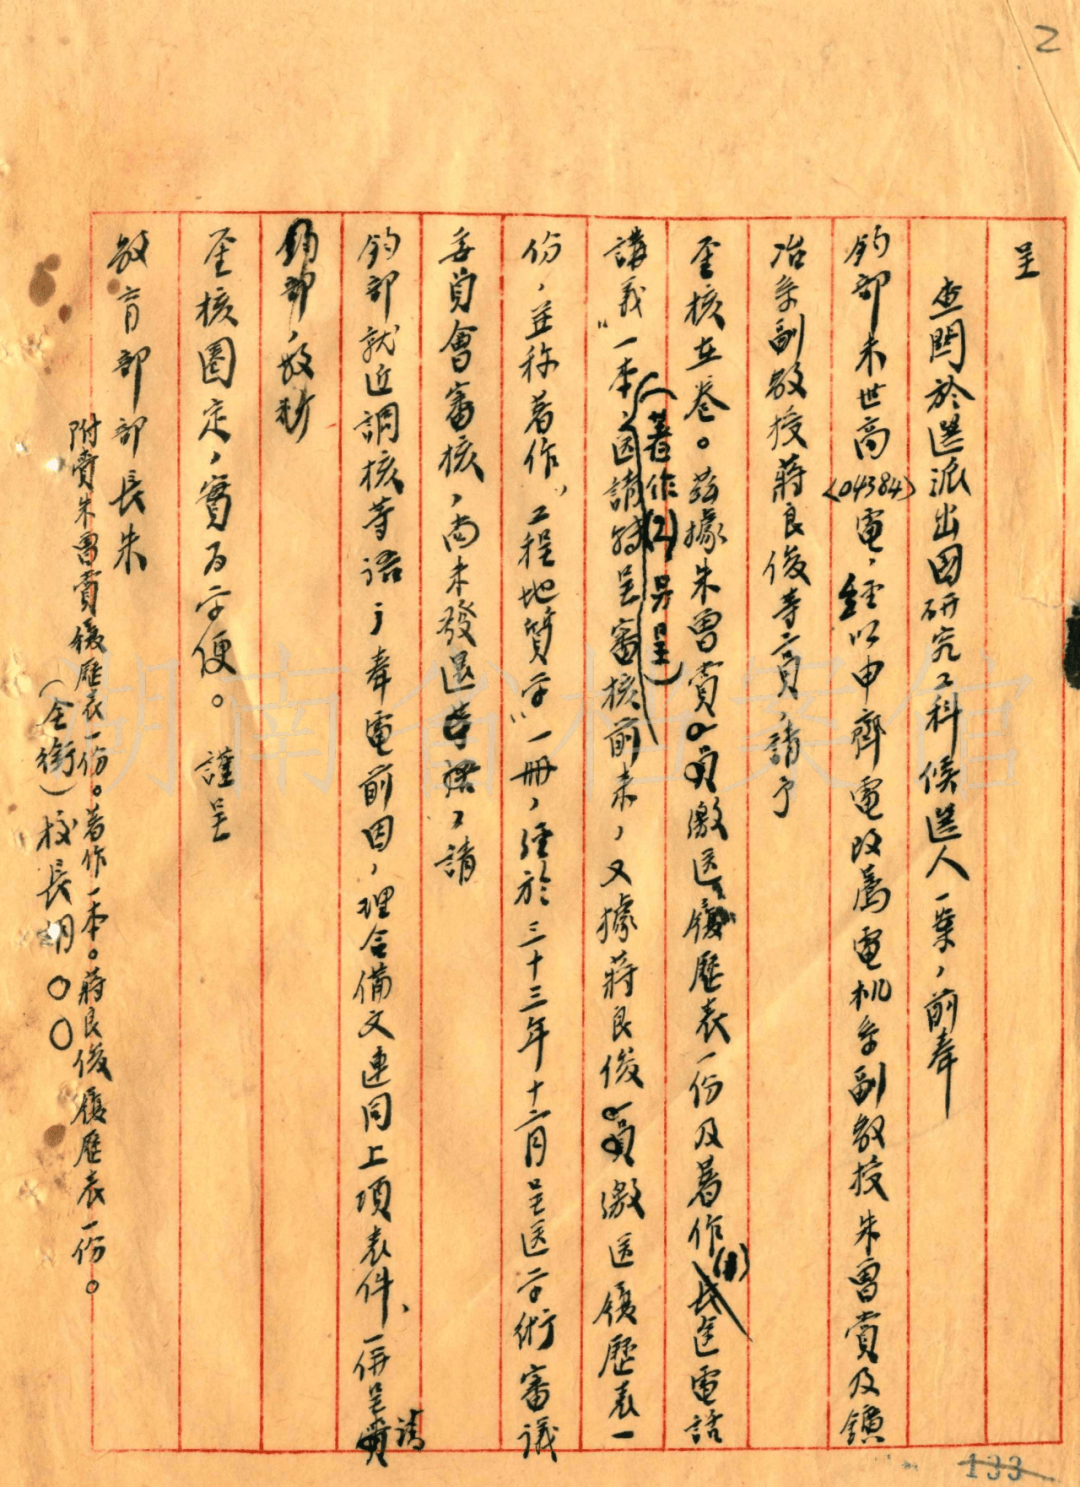 2
呈
查關於選派出囯研究工科候選人一案，前奉
鈞部未世高〈04384〉電，經以申齊電改薦電机系副教授朱曾賞及鑛
冶系副教授蔣良俊等二員，請予
荃核在卷。茲據朱曾賞員繳送履歷表一份及著作(1)長途電話
（著作(2)另呈）
講義一本，因請轉呈審核前来，又據蔣良俊員繳送履歷表一
份，並称著作「工程地質学」一冊，經於三十三年十二月呈送学術審議
委員會審核，尚未發還等語，請
鈞部就近調核等語；奉電前因，理合備文連同上項表件，一併呈請
鈞部，敬祈
荃核圈定，實为公便。謹呈
教育部部長朱
附賫朱曾賞履歷表一份。著作一本。蔣良俊履歷表一份。
（全銜）校長胡○○
湖南省档案馆
133